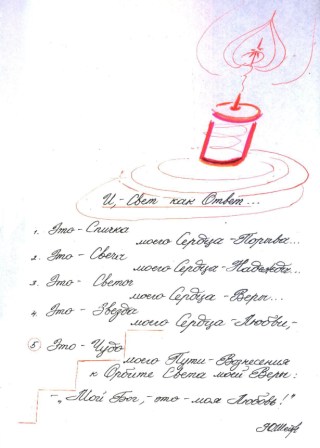 И, - Свет как Ответ...
1. Это - Спичка
моего Сердца - Порыва...
2. Это - Свеча
моего Сердца - Надежды...
3. Это - Светоч
моего Сердца - Веры...
4. Это - Звезда
моего Сердца - Любви, -
5. Это - Чудо
моего Пути - Вознесения
к Орбите Света моей Веры:
- „Мой Бог, - это - моя Любовь!"